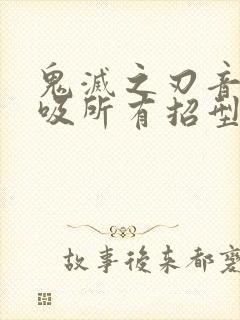 鬼滅之刃音
吸所有招型
故事後来都